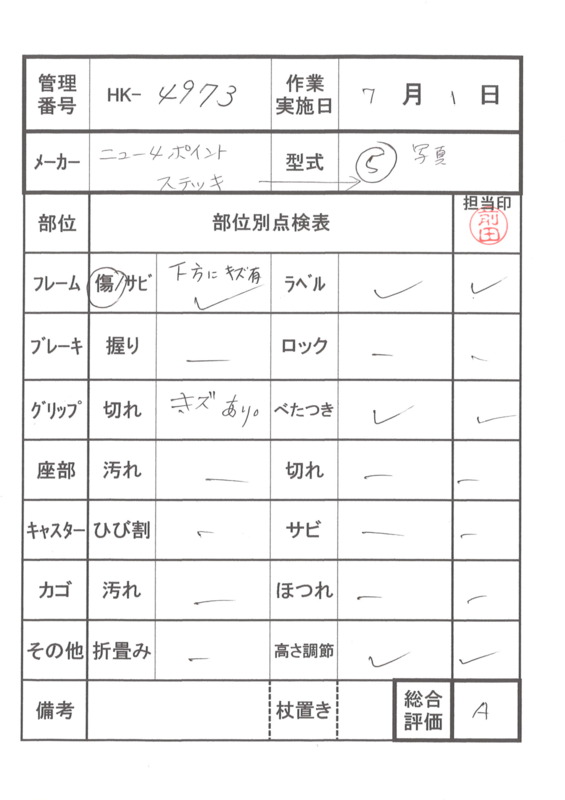 管理番号 HK- 4973 作業実施日 7 月 1 日
メーカー ニュー4ポイントステッキ 型式 S 写真
部位 部位別点検表 担当印 前田
フレーム 傷/サビ 下方にキズ有 ✓ ラベル ✓ ✓
ブレーキ 握り — ロック — -
グリップ 切れ キズあり。 べたつき ✓ ✓
座部 汚れ — 切れ — -
キャスター ひび割 - サビ — -
カゴ 汚れ — ほつれ — -
その他 折畳み - 高さ調節 ✓ ✓
備考 杖置き 総合評価 A